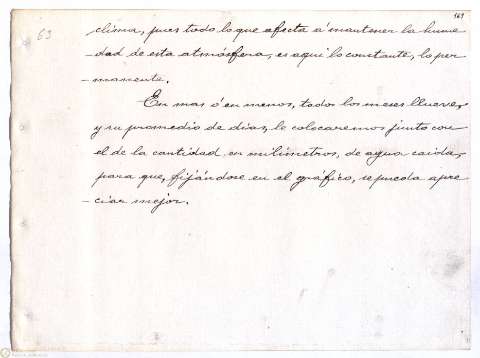 169
63
clima, pues todo lo que afecta á mantener la hume
-dad de esta atmósfera, es aqui lo constante, lo per
-manente.
En mas ó en menos, todos los meses llueve,
y su promedio de dias, le colocaremos junto con
el de la cantidad en milímetros, de agua caida,
para que, fijándose en el gráfico, se pueda apre
-ciar mejor.